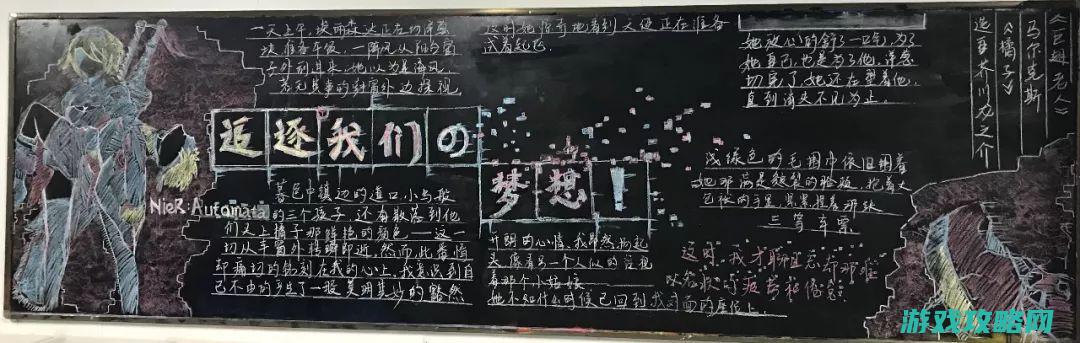 一天上午，埃丽森达正在切洋葱
块准备午饭，一阵风从阳台窗
子外刮进来，她以为是海风，
若无其事的到窗外边探视，
这时她惊奇地看到天使正在准备
试着起飞
她放心的舒了一口气，为了
她自己，也是为了他，洋葱
切完了，她还在望着他，
直到消失不见为止。
《巨翅老人》
马尔克斯
《橘子》
选自芥川龙之介
追逐我们の
梦想！
NieR:Automata
暮色中镇边的道口，小鸟般
的三个孩子，还有散落到他
们头上橘子那鲜艳的颜色——这一
切从车窗外转瞬即逝，然而，此番情
却痛切的铭刻在我的心上，我意识到自
己不由的产生了一股莫明其妙的豁然
开朗的心情、我昂然抬起
头，像看另一个人似的注视
着那个小姑娘
她不知什么时候已回到我对面的座位上。
浅绿色的毛围巾依旧围着
她那满是皴裂的脸颊，抱着大
包袱的手里，紧紧握着那张
三等车票。
这时，我才聊且忘却那难
以名状的疲劳和倦怠
游戏攻略网